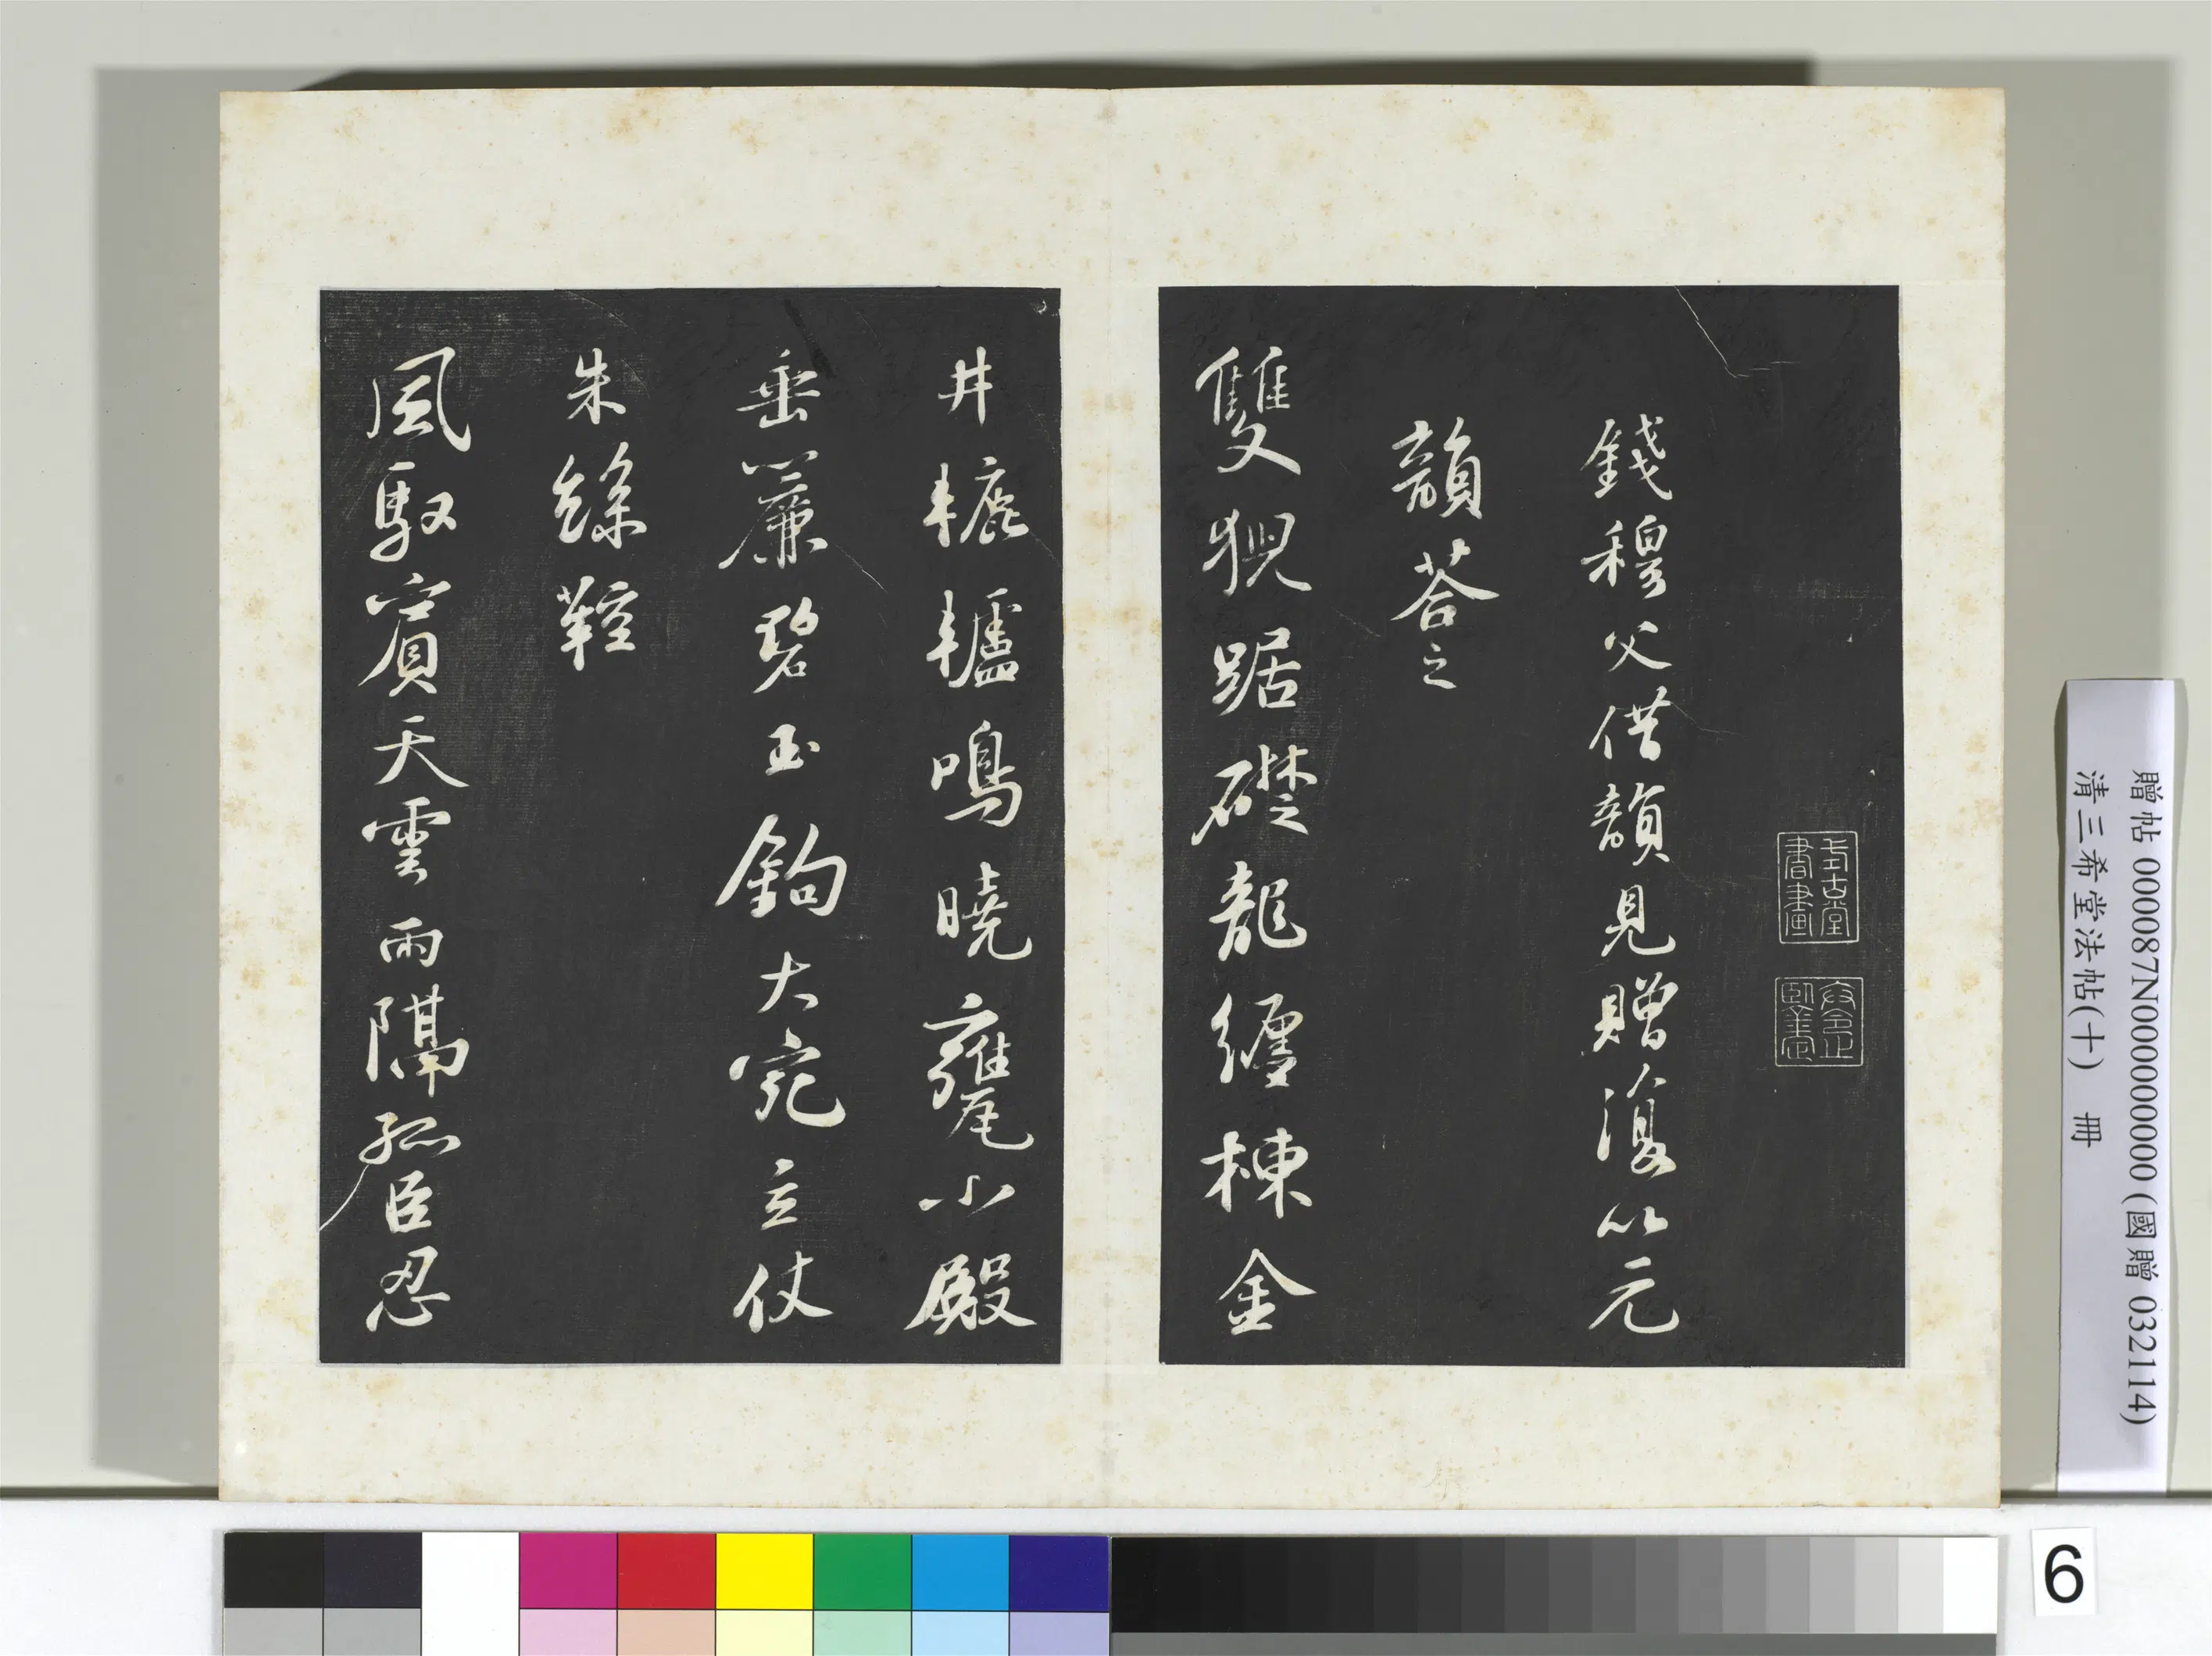 式古堂
書畫
錢穆父借韻見贈復以元
韻荅之
雙猊踞礎龍纏棟金
井轆轤鳴曉甕小殿
垂簾碧玉鉤大宛立仗
朱絲鞚
風馭賓天雲雨隔孤臣忍
贈帖 000087N000000000 (國贈 032114)
清三希堂法帖(十) 冊
6